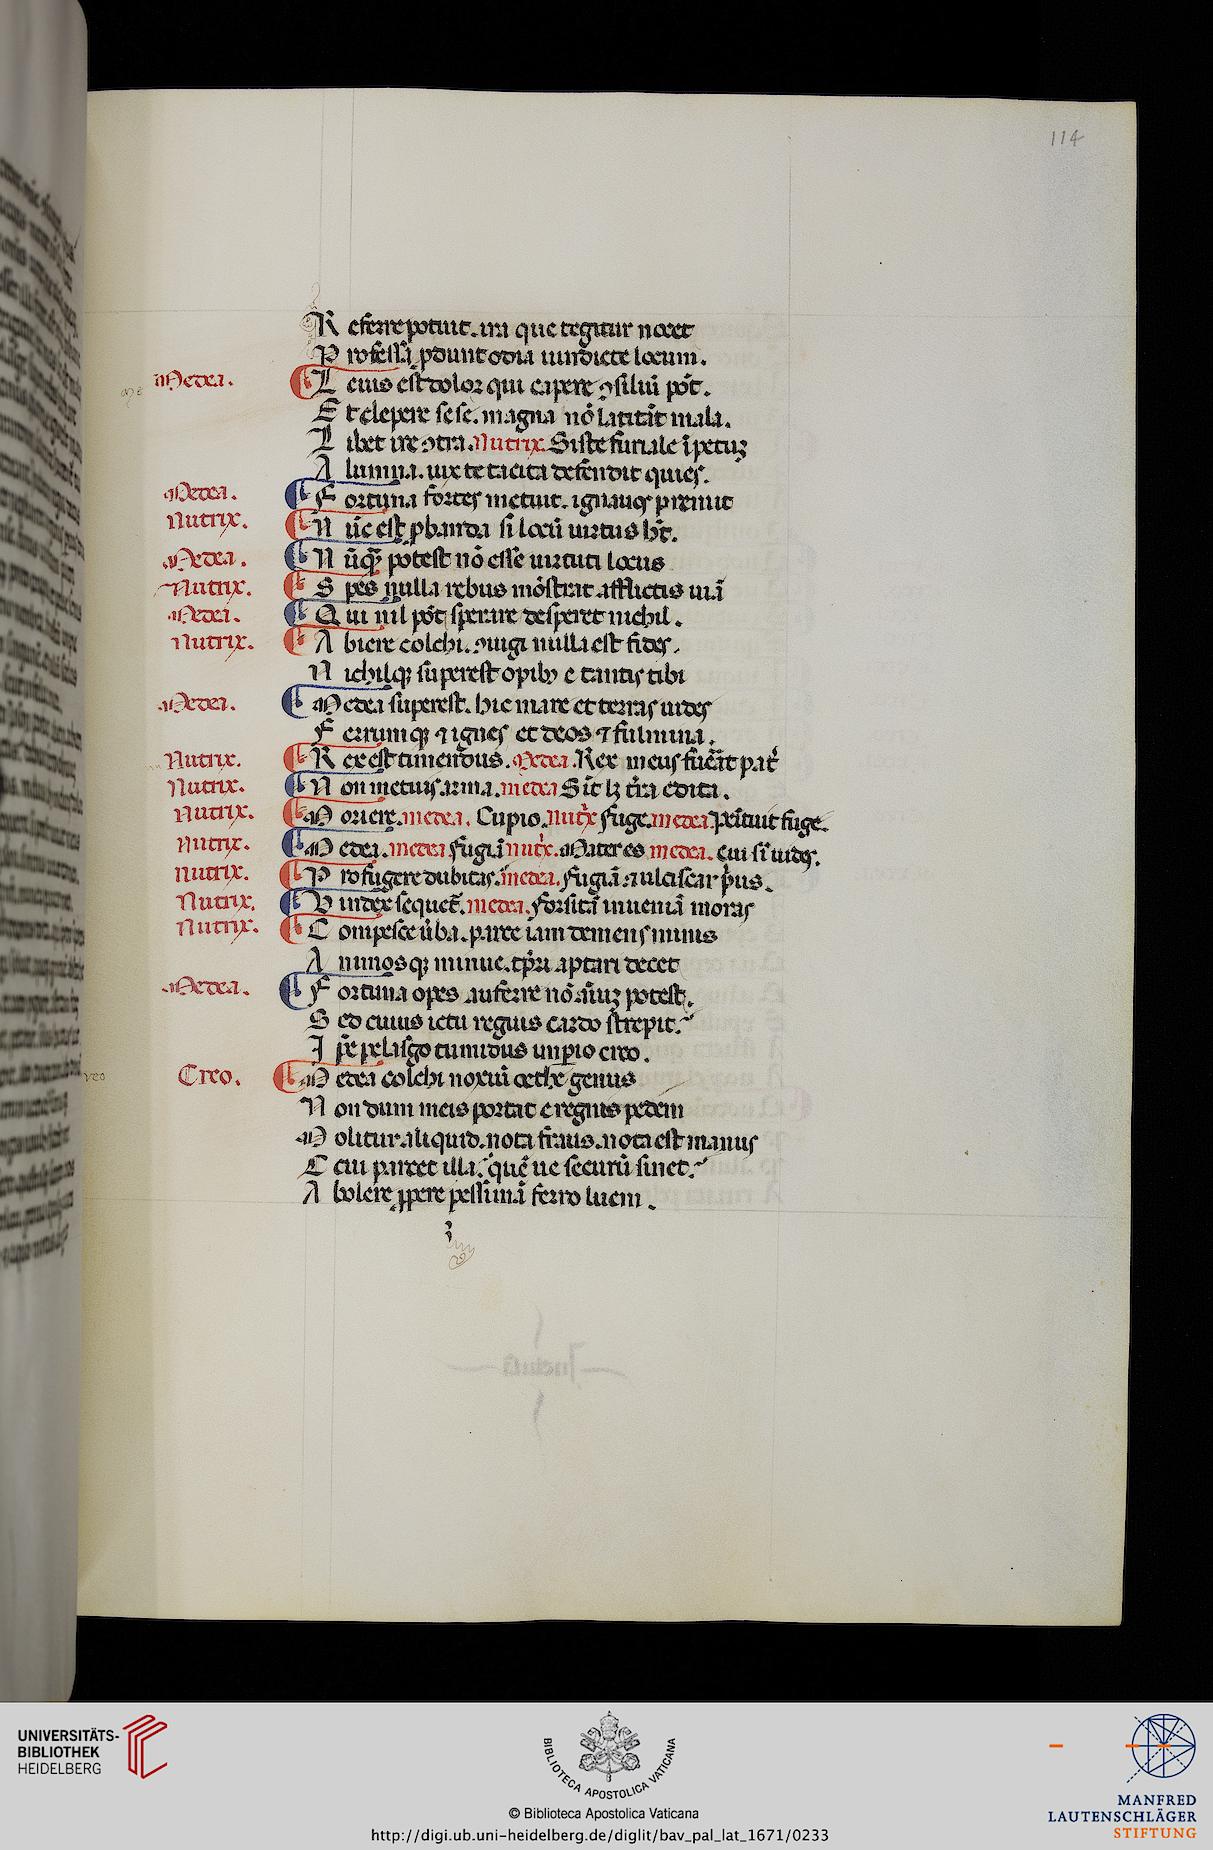 114
R eferre potuit. ira que tegitur nocet
P rofessa pdunt odia uindicte locum.
Medea. L euis est dolor qui capere ꝯsiliũ põt.
E t clepere sese. magna nõ latitãt mala.
L ibet ire ꝯtra. Nutrix. Siste furiale ĩpetuꝫ
A lumna. uix te tacita defendit quies.
Medea. F ortuna fortes metuit. ignauos premit
Nutrix. N ũc est ꝓbanda si locũ uirtus hꝫ.
Medea. N ũqꝫ potest nõ esse uirtuti locus
Nutrix. S pes nulla rebus mõstrat afflictis uiã
Medea. Q ui nil põt sperare desperet nichil.
Nutrix. A biere colchi. ꝯiugi nulla est fides.
N ichilqꝫ superest opibꝫ e tantis tibi
Medea. M edea superest. hic mare et terras uides
F errumqꝫ ⁊ ignes et deos ⁊ fulmina.
Nutrix. R ex est timendus. Medea. Rex meus fuẽat pat̃
Nutrix. N on metuis arma. medea Sĩt lꝫ tr̃a edita.
Nutrix. M oriere. medea. Cupio. nutx̃ fuge. medea. pẽituit fuge.
Nutrix. M edea. medea fugiã nutx̃. Mater es medea. cui sĩ uides.
Nutrix. P rofugere dubitas. medea. fugiã. a ulciscar p̃us.
Nutrix. V index sequet̃. medea. forsitã inueniã moras
Nutrix. C ompesce ũba. parce iam demens minis
A nimosqꝫ minue. tp̃ri aptari decet
Medea. F ortuna opes auferre nõ aĩuꝫ potest.
S ed cuius ictu regius cardo strepit.
I pẽ pelasgo tumidus impio creo.
Creo. M edea colchi noxiũ oethe genus
N on dum meis portat e regnis pedem
M olitur aliquid. nota fraus. nota est manus
C cui parcet illa. quẽ ue securũ sinet.
A bolere ꝓpere pessimã ferro luem.
UNIVERSITÄTS-
BIBLIOTHEK
HEIDELBERG
BIBLIOTECA APOSTOLICA VATICANA
© Biblioteca Apostolica Vaticana
http://digi.ub.uni-heidelberg.de/diglit/bav_pal_lat_1671/0233
MANFRED
LAUTENSCHLÄGER
STIFTUNG